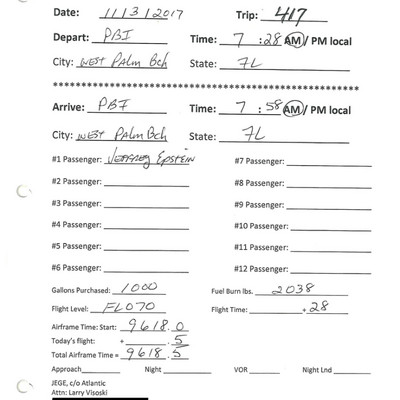 Date: 11/3/2017 Trip: 417
Depart: PBI Time: 7 :28 AM / PM local
City: WEST PALM Bch State: FL
**********************************************************
Arrive: PBI Time: 7 : 58 AM / PM local
City: WEST PALM Bch State: FL
#1 Passenger: Jeffrey Epstein #7 Passenger:
#2 Passenger: #8 Passenger:
#3 Passenger: #9 Passenger:
#4 Passenger: #10 Passenger:
#5 Passenger: #11 Passenger:
#6 Passenger: #12 Passenger:
Gallons Purchased: 1000 Fuel Burn lbs. 2038
Flight Level: FL070 Flight Time: + 28
Airframe Time: Start: 9618.0
Today's flight: + .5
Total Airframe Time = 9618.5
Approach Night VOR Night Lnd
JEGE, c/o Atlantic
Attn: Larry Visoski